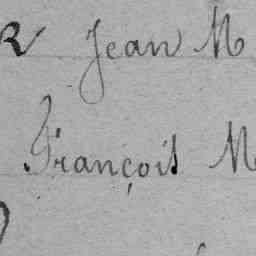 R Jean M
François M